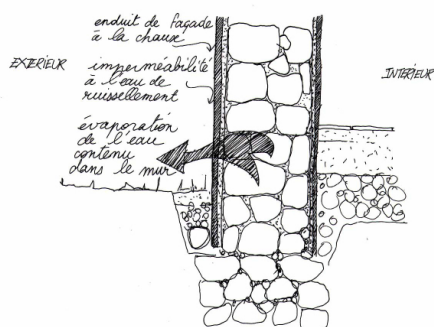 enduit de façade
à la chaux
EXTERIEUR
imperméabilité
à l'eau de
ruissellement
INTERIEUR
évaporation
de l'eau
contenu
dans le mur